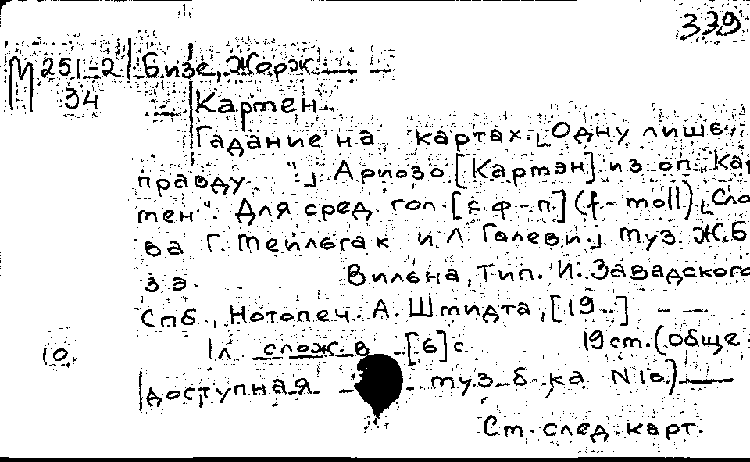 339
М 251-2 Бизе, Жорж
34 Кармен.
Гадание на картах. „Одну лишь
правду..." Ариозо [Кармэн] из оп. „Кар
мен". Для сред. гол. [с ф-п.] (f-moll) Сло
ва Г. Мейльгак и Л. Галеви. Муз. Ж. Б
зэ. Вильна, Тип. И. Завадского
Спб., Нотопеч. А. Шмидта, [19..]
10. 1 л. слож. в [6] с. 19 ст. (Обще
доступная муз. б-ка N 10.)
См. след. карт.